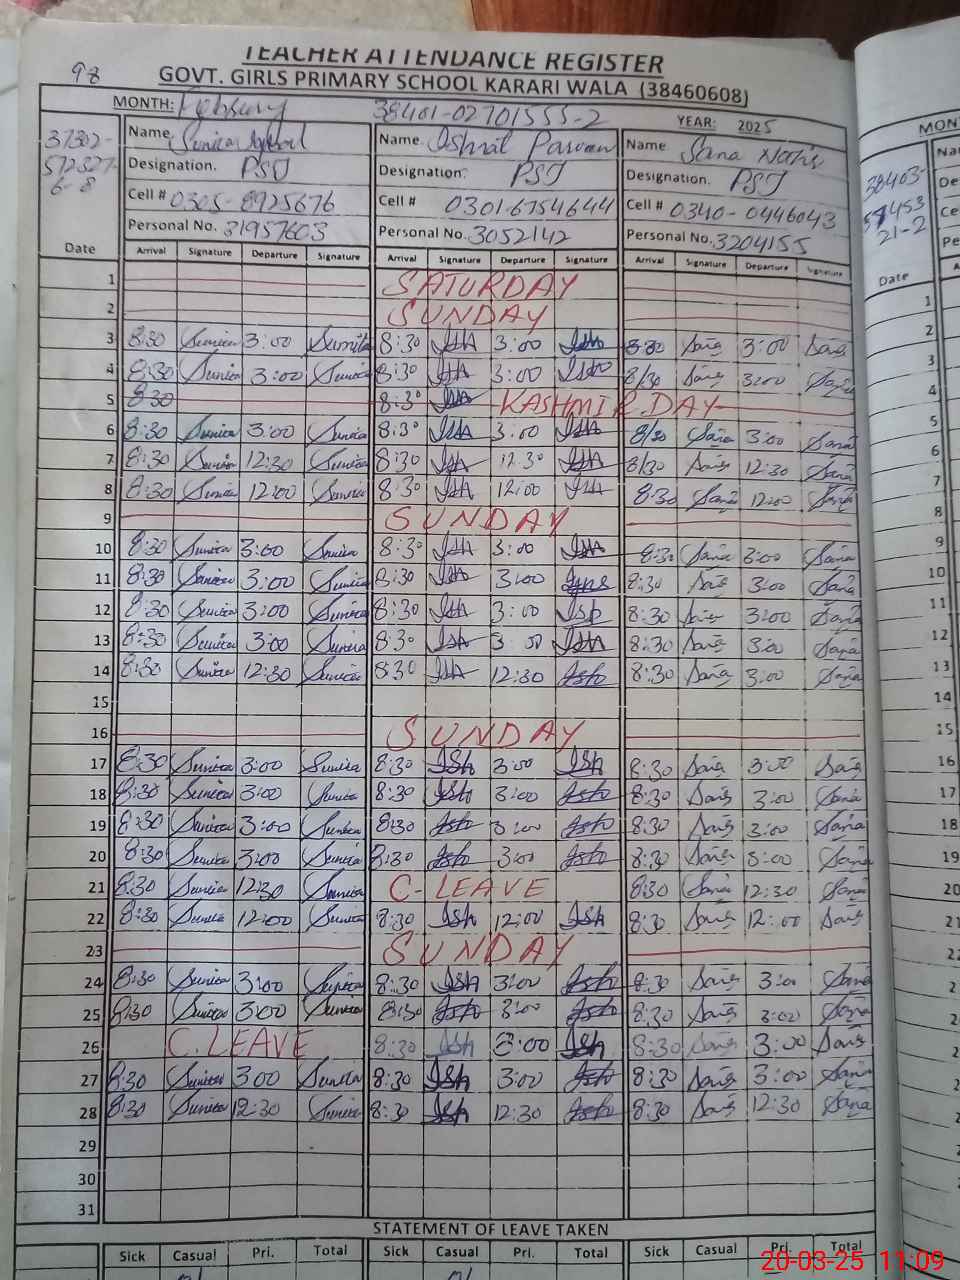 98
TEACHER ATTENDANCE REGISTER
GOVT. GIRLS PRIMARY SCHOOL KARARI WALA (38460608)
MONTH: 38401-0270155-2 YEAR: 2025
37302-
6-8
Name Name Ishrat Parveen Name Sana
Designation. PST Designation. PST Designation. PST
Cell # 0305-8925676 Cell # 0301-6754644 Cell # 0340-0446043
Personal No. 31957603 Personal No. 3052142 Personal No. 3204155
Date Arrival Signature Departure Signature Arrival Signature Departure Signature Arrival Signature Departure Signature
1 SATURDAY
2 SUNDAY
3 8:30 Sunita 3:00 Sunita 8:30 Ish 3:00 Ish 8:30 Sana 3:00 Sana
4 8:30 Sunita 3:00 Sunita 8:30 Ish 3:00 Ish 8/30 Sana 3:00 Sana
5 8:30 8:30 Ish KASHMIR DAY
6 8:30 Sunita 3:00 Sunita 8:30 Ish 3:00 Ish 8/30 Sana 3:00 Sana
7 8:30 Sunita 12:30 Sunita 8:30 Ish 12:30 Ish 8/30 Sana 12:30 Sana
8 8:30 Sunita 12:00 Sunita 8:30 Ish 12:00 Ish 8:30 Sana 12:00 Sana
9 SUNDAY
10 8:30 Sunita 3:00 Sunita 8:30 Ish 3:00 Ish 8:30 Sana 3:00 Sana
11 8:30 Sunita 3:00 Sunita 8:30 Ish 3:00 8:30 Sana 3:00 Sana
12 8:30 Sunita 3:00 Sunita 8:30 Ish 3:00 Ish 8:30 Sana 3:00 Sana
13 8:30 Sunita 3:00 Sunita 8:30 Ish 3 00 Ish 8:30 Sana 3:00 Sana
14 8:30 Sunita 12:30 Sunita 8:30 Ish 12:30 Ish 8:30 Sana 3:00 Sana
15
16 SUNDAY
17 8:30 Sunita 3:00 Sunita 8:30 Ish 3:00 Ish 8:30 Sana 3:00 Sana
18 8:30 Sunita 3:00 Sunita 8:30 Ish 3:00 Ish 8:30 Sana 3:00 Sana
19 8:30 Sunita 3:00 Sunita 8:30 Ish 3:00 Ish 8:30 Sana 3:00 Sana
20 8:30 Sunita 3:00 Sunita 8:30 Ish 3:00 Ish 8:30 Sana 3:00 Sana
21 8:30 Sunita 12:30 Sunita C-LEAVE 8:30 Sana 12:30 Sana
22 8:30 Sunita 12:00 Sunita 8:30 Ish 12:00 Ish 8:30 Sana 12:00 Sana
23 SUNDAY
24 8:30 Sunita 3:00 Sunita 8:30 Ish 3:00 Ish 8:30 Sana 3:00 Sana
25 8:30 Sunita 3:00 Sunita 8:30 Ish 3:00 Ish 8:30 Sana 3:00 Sana
26 C. LEAVE 8:30 Ish 3:00 Ish 8:30 Sana 3:00 Sana
27 8:30 Sunita 3:00 Sunita 8:30 Ish 3:00 Ish 8:30 Sana 3:00 Sana
28 8:30 Sunita 12:30 Sunita 8:30 Ish 12:30 Ish 8:30 Sana 12:30 Sana
29
30
31
STATEMENT OF LEAVE TAKEN
Sick Casual Pri. Total Sick Casual Pri. Total Sick Casual Pri. Total
01 01
20-03-25 11:09
38403-
21-2
Date
1
2
3
4
5
6
7
8
9
10
11
12
13
14
15
16
17
18
19
20